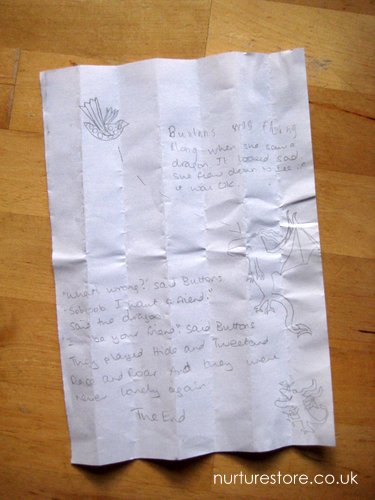 Buttons was flying
along when she saw a
dragon. It looked sad
she flew down to see if
it was OK
"What's wrong?" said Buttons
"Sob, sob I want a friend."
said the dragon
"I'll be your friend" said Buttons
They played Hide and Tweet and
Race and Roar And they were
never lonely again
The End
nurturestore.co.uk